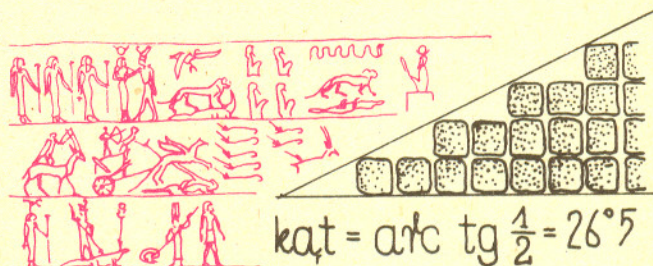 kąt = arc tg 1/2 = 26°5